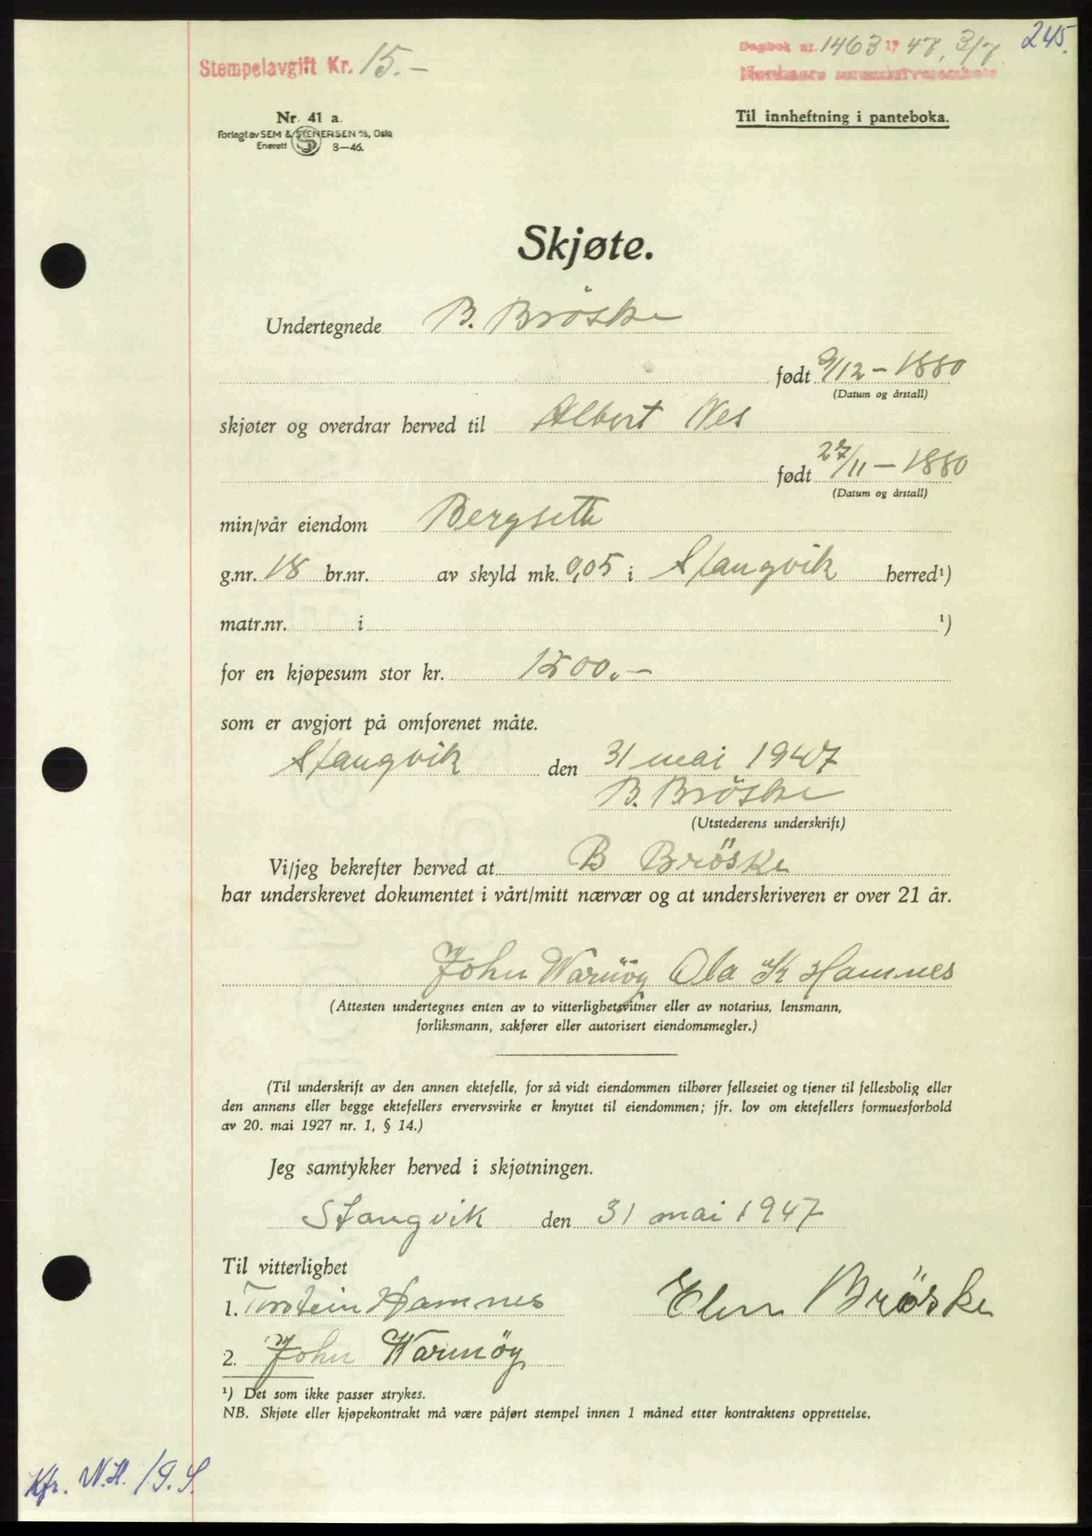 245.
Stempelavgift Kr. 15.-
Dagbok nr. 1463 19 47, 3/7
Nordmøre sorenskriverembete
Nr. 41 a.
Forlagt av SEM & STENERSEN A/S, Oslo
Enerett S 8—46.
Til innheftning i panteboka.
Skjøte.
Undertegnede B. Bröske
født 9/12 - 1880
(Datum og årstall)
skjøter og overdrar herved til Albert Nes
født 27/11 - 1880
(Datum og årstall)
min/vår eiendom Bergseth
g.nr. 18 br.nr. av skyld mk. 0,05 i Stangvik herred¹)
matr.nr. i ¹)
for en kjøpesum stor kr. 1500.-
som er avgjort på omforenet måte.
Stangvik den 31 mai 1947
B. Bröske
(Utstederens underskrift)
Vi/jeg bekrefter herved at B Bröske
har underskrevet dokumentet i vårt/mitt nærvær og at underskriveren er over 21 år.
John Warmöy Ola K Hamnes
(Attesten undertegnes enten av to vitterlighetsvitner eller av notarius, lensmann,
forliksmann, sakfører eller autorisert eiendomsmegler.)
(Til underskrift av den annen ektefelle, for så vidt eiendommen tilhører felleseiet og tjener til fellesbolig eller
den annens eller begge ektefellers ervervsvirke er knyttet til eiendommen; jfr. lov om ektefellers formuesforhold
av 20. mai 1927 nr. 1, § 14.)
Jeg samtykker herved i skjøtningen.
Stangvik den 31 mai 1947
Til vitterlighet
1. Torstein Hamnes Elen Bröske
2. John Warmöy
¹) Det som ikke passer strykes.
NB. Skjøte eller kjøpekontrakt må være påført stempel innen 1 måned etter kontraktens opprettelse.
Kfr. N.H.